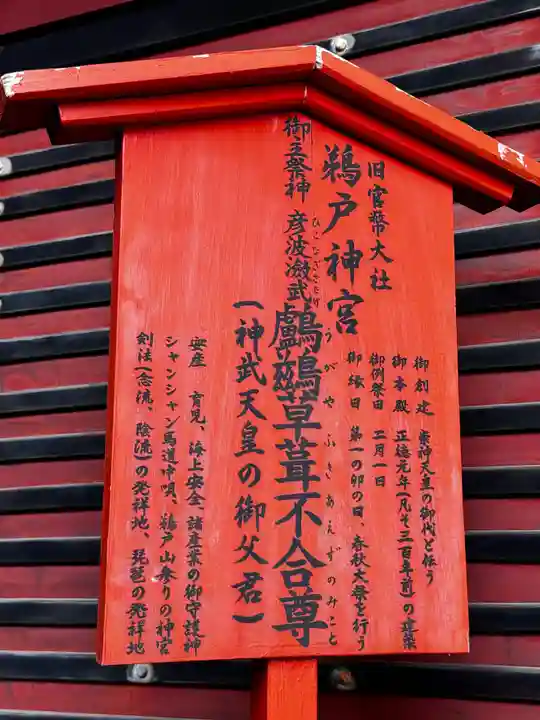 旧官幣大社
鵜戸神宮
御創建 崇神天皇の御代と伝う
御本殿 正徳元年(凡そ三百年前)の建築
御例祭日 二月一日
御縁日 第一の卯の日、春秋大祭を行う
御主祭神 彦波瀲武鸕鷀草葺不合尊
ひこなぎさたけうがやふきあえずのみこと
(神武天皇の御父君)
安産 育児、海上安全、諸産業の御守護神
シャンシャン馬道中唄、鵜戸山参りの神宮
剣法(念流、陰流)の発祥地、琵琶の発祥地